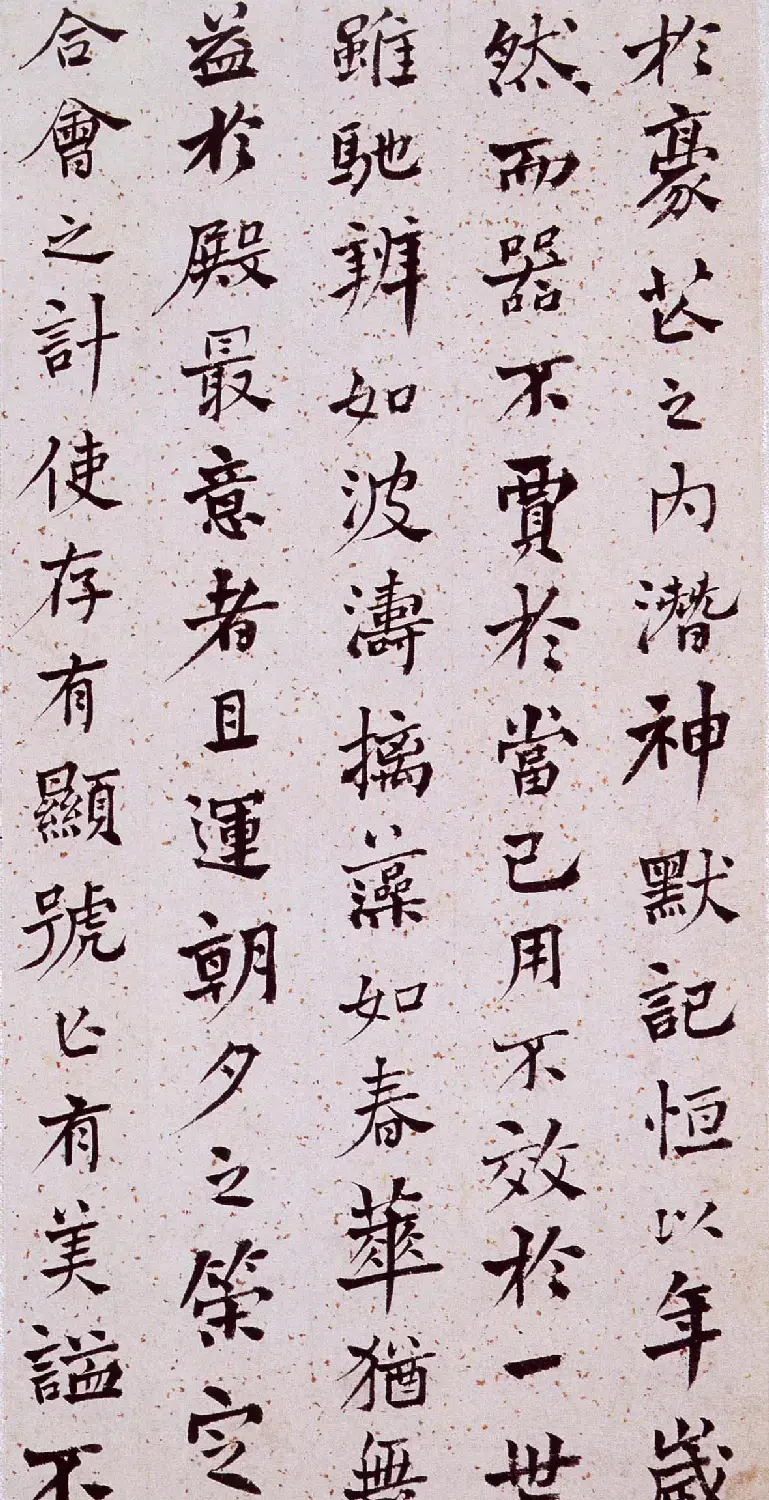 於豪芒之内潛神默記恒以年歲
然而器不賈於當己用不效於一世
雖馳辨如波濤摛藻如春華猶無
益於殿最意者且運朝夕之策定
合會之計使存有顯號亡有美謚不